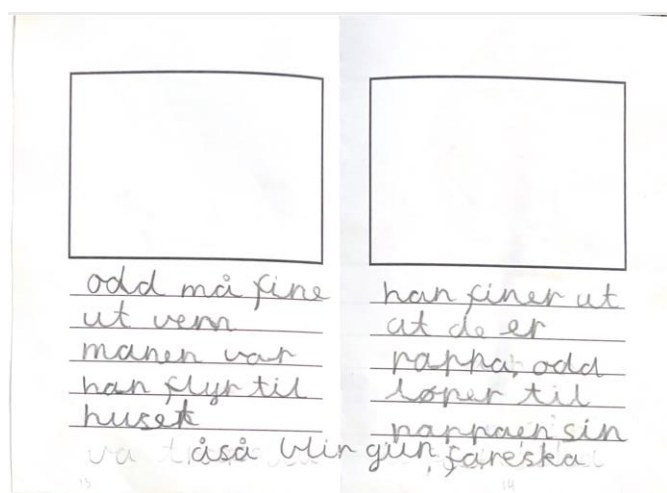 odd må fine
ut vem
manen var
han flyr til
huset
han finer ut
at de er
pappa, odd
løper til
pappaen sin
åså blir gun, fareska
13
14